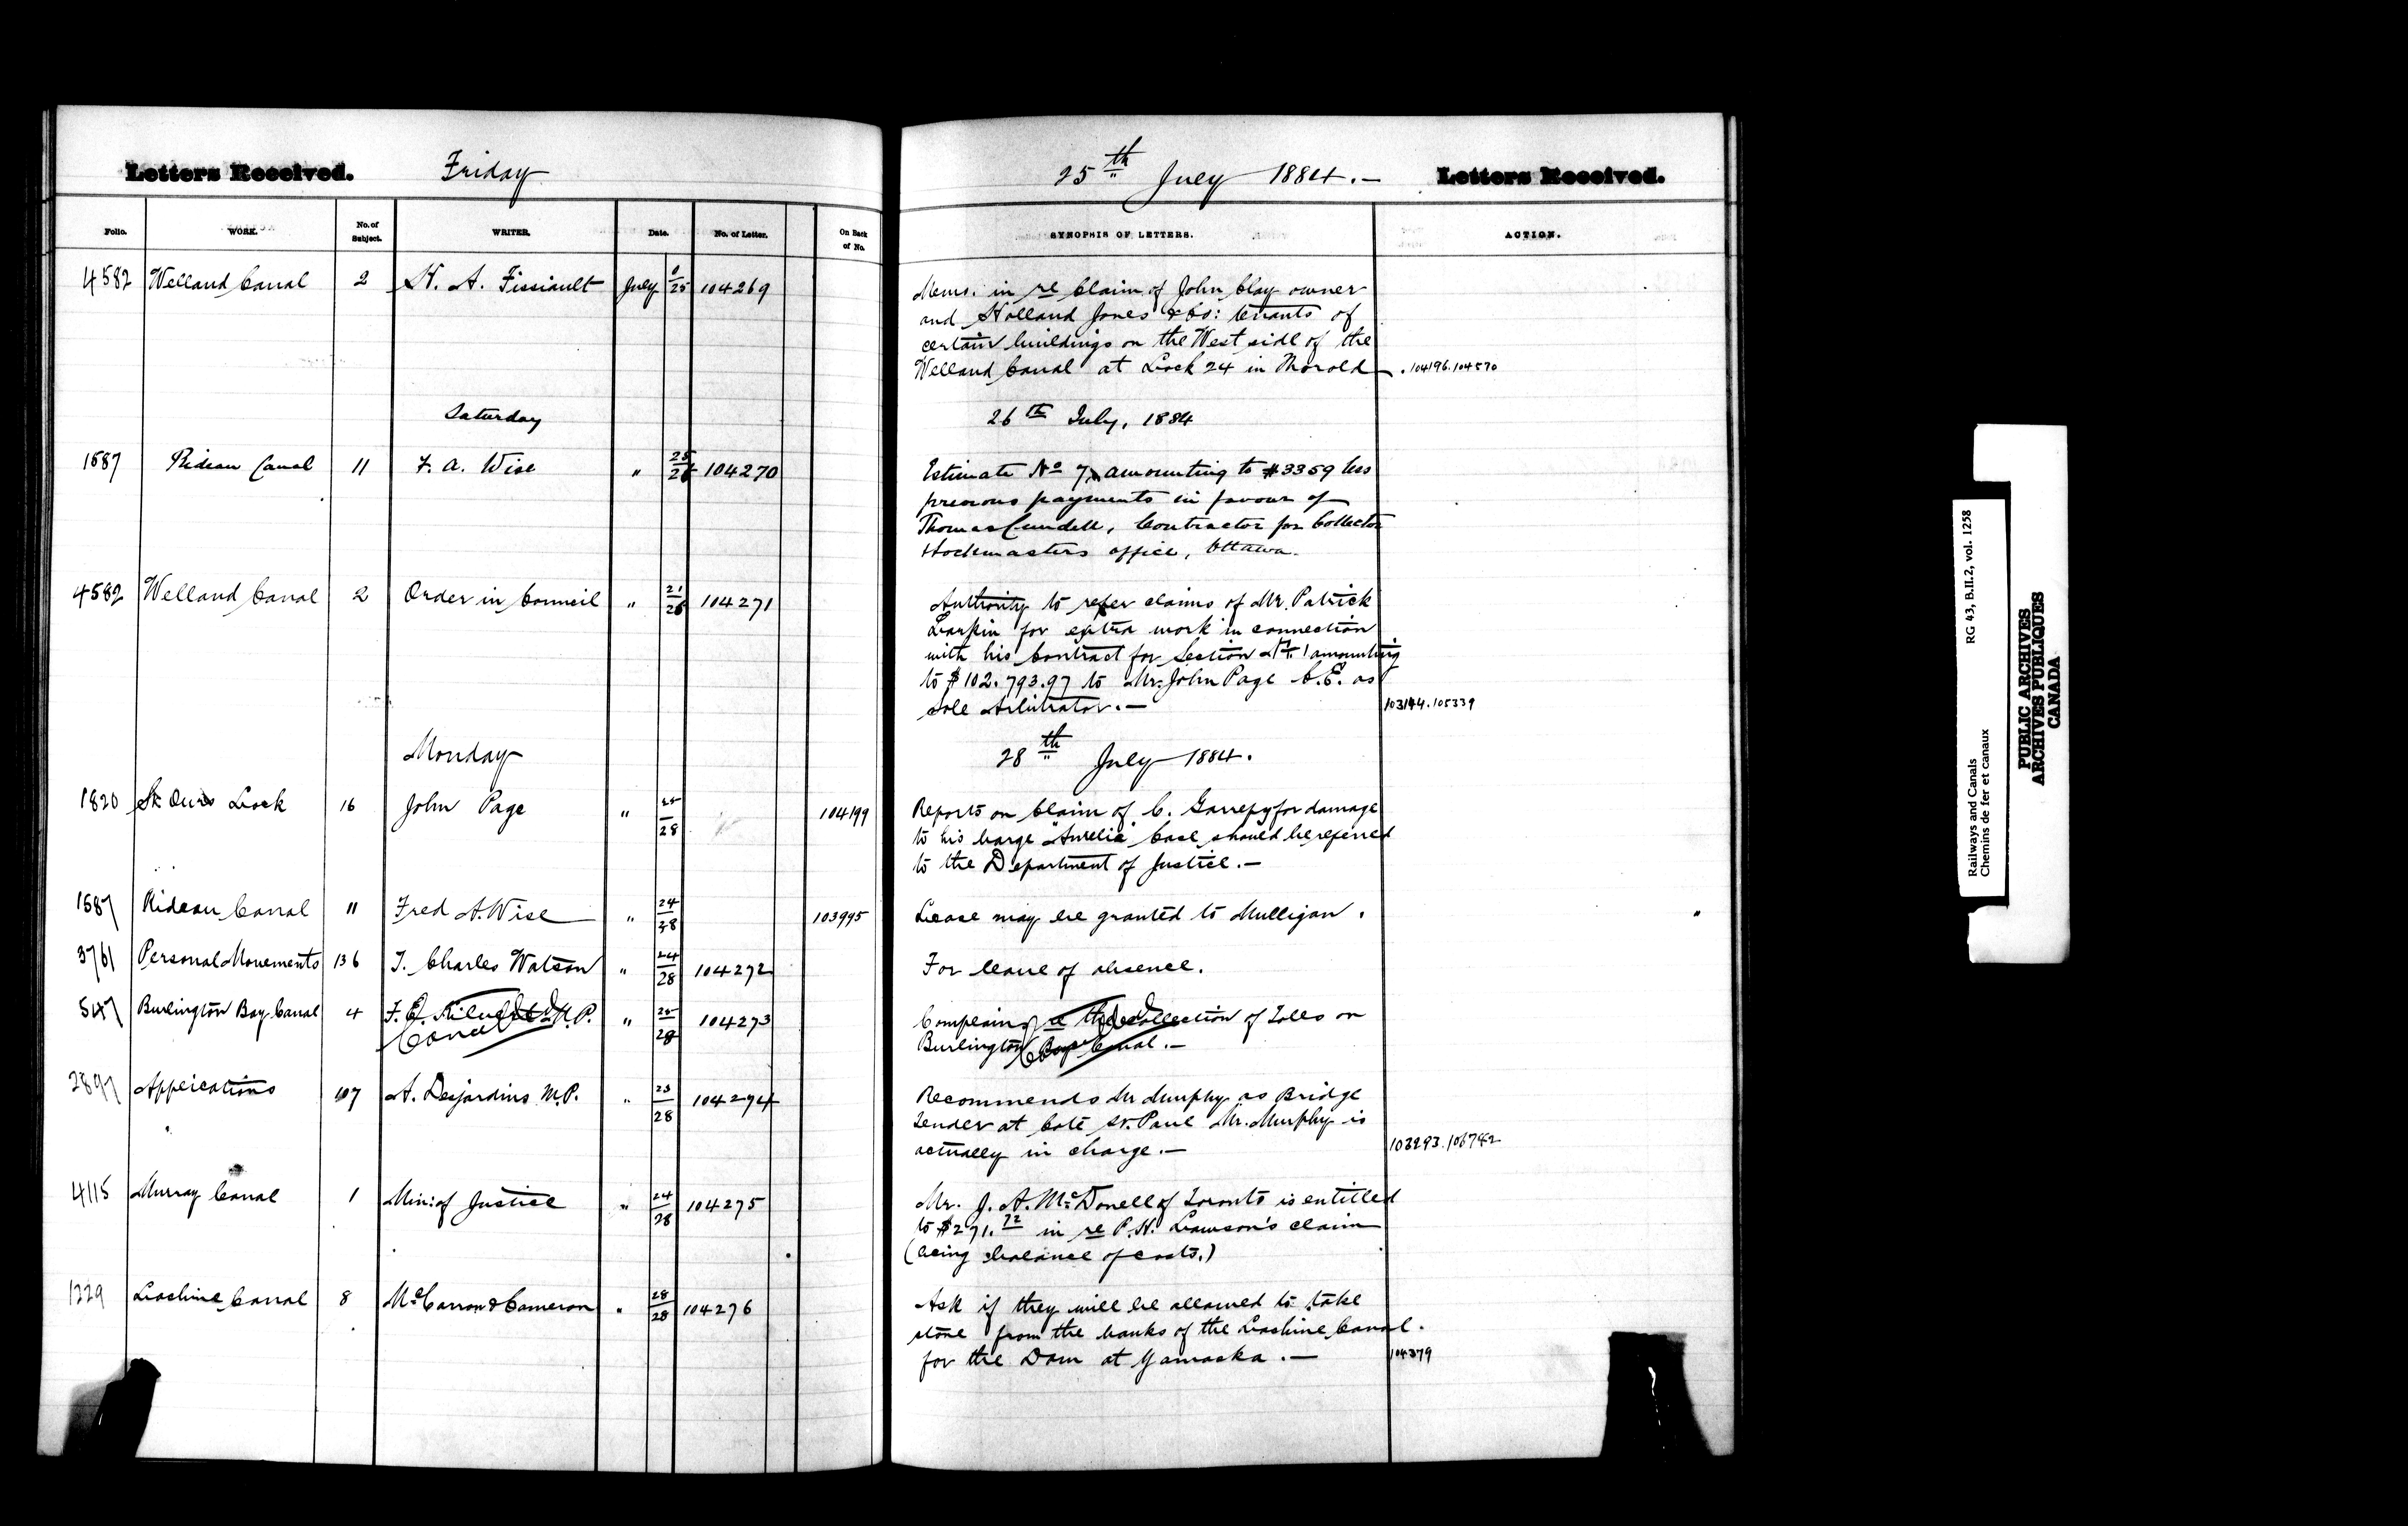 Letters Received. Friday 25th July 1884.— Letters Received.
Folio. WORK. No. of Subject. WRITER. Date. No. of Letter. On Back of No. SYNOPSIS OF LETTERS. ACTION.
4582 Welland Canal 2 H. A. Fissiault July 25 104269 Memo. in re Claim of John Clay owner
and Holland Jones & Co: tenants of
certain buildings on the West side of the
Welland Canal at Lock 24 in Thorold — . 104196. 104570
Saturday 26th July, 1884
1587 Rideau Canal 11 F. A. Wise " 25/26 104270 Estimate No 7, amounting to $3359 less
previous payments in favour of
Thomas Cundell, Contractor for Collector
& Lockmasters office, Ottawa.
4582 Welland Canal 2 Order in Council " 21/26 104271 Authority to refer claims of Mr. Patrick
Larkin for extra work in connection
with his Contract for Section No. 1 amounting
to $102.793.97 to Mr. John Page C.E. as
sole Arbitrator.— 103144. 105339
Monday 28th July 1884.
1820 St. Ours Lock 16 John Page " 25/28 104199 Reports on Claim of C. Garrepy for damage
to his barge "Aurelia" Case should be referred
to the Department of Justice.—
1587 Rideau Canal 11 Fred A. Wise " 24/28 103995 Lease may be granted to Mulligan.
3761 Personal Movements 136 T. Charles Watson " 24/28 104272 For leave of absence.
547 Burlington Bay Canal 4 F. E. M.P. " 25/28 104273 Complains re the collection of Tolls on
Cancelled
Burlington Bay Canal.—
2897 Applications 107 A. Desjardins M.P. " 23/28 104274 Recommends Mr Murphy as Bridge
Tender at Cote St. Paul Mr. Murphy is
actually in charge.— 103293. 106782
4115 Murray Canal 1 Min: of Justice " 24/28 104275 Mr. J. A. McDonell of Toronto is entitled
to $271.72 in re P. H. Lawson's claim
(being balance of costs.)
1229 Lachine Canal 8 McCarron & Cameron " 28/28 104276 Ask if they will be allowed to take
stone from the banks of the Lachine Canal.
for the Dam at Yamaska.— 104379
Railways and Canals RG 43, B.II.2, vol. 1258
Chemins de fer et canaux
PUBLIC ARCHIVES
ARCHIVES PUBLIQUES
CANADA